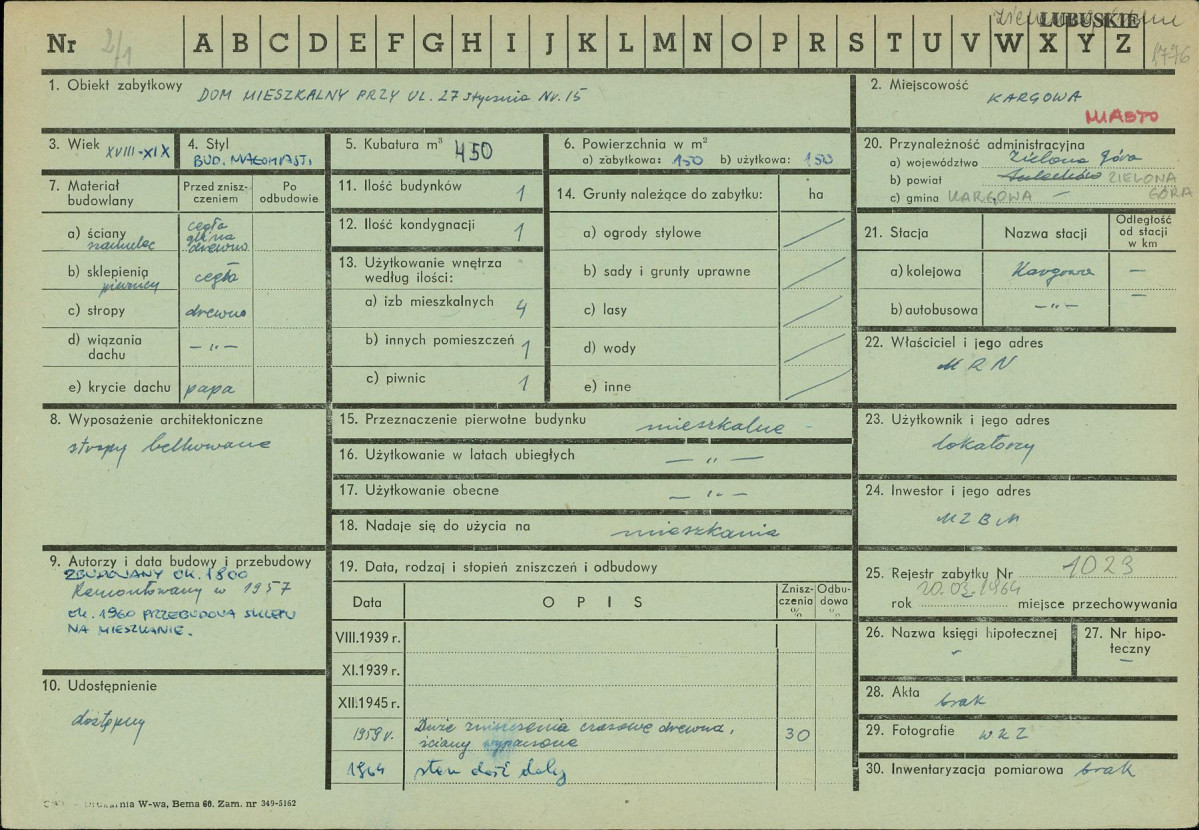 LUBUSKIE
Nr 2/1 A B C D E F G H I J K L M N O P R S T U V W X Y Z
1776
1. Obiekt zabytkowy DOM MIESZKALNY PRZY UL. 27 Stycznia Nr. 15
2. Miejscowość KARGOWA
MIASTO
3. Wiek XVIII-XIX
4. Styl BUD. MAŁOMIAST.
5. Kubatura m³ 450
6. Powierzchnia w m²
a) zabytkowa: 150 b) użytkowa: 150
20. Przynależność administracyjna
a) województwo Zielona Góra
b) powiat Sulechów ZIELONA GÓRA
c) gmina KARGOWA —
7. Materiał budowlany
Przed zniszczeniem
Po odbudowie
a) ściany szachulec cegła glina drewno
b) sklepienia piwnicy cegła
c) stropy drewno
d) wiązania dachu — „ —
e) krycie dachu papa
11. Ilość budynków 1
12. Ilość kondygnacji 1
13. Użytkowanie wnętrza według ilości:
a) izb mieszkalnych 4
b) innych pomieszczeń 1
c) piwnic 1
14. Grunty należące do zabytku: ha
a) ogrody stylowe
b) sady i grunty uprawne
c) lasy
d) wody
e) inne
21. Stacja Nazwa stacji Odległość od stacji w km
a) kolejowa Kargowa —
b) autobusowa — „ — —
22. Właściciel i jego adres
MRN
8. Wyposażenie architektoniczne
stropy belkowane
15. Przeznaczenie pierwotne budynku mieszkalne
16. Użytkowanie w latach ubiegłych — „ —
17. Użytkowanie obecne — „ —
18. Nadaje się do użycia na mieszkania
23. Użytkownik i jego adres
lokatorzy
24. Inwestor i jego adres
MZBM
9. Autorzy i data budowy i przebudowy
ZBUDOWANY OK. 1800
Remontowany w 1957
OK. 1960 PRZEBUDOWA SKLEPU
NA MIESZKANIE.
10. Udostępnienie
dostępny
19. Data, rodzaj i stopień zniszczeń i odbudowy
Data OPIS Zniszczenia % Odbudowa %
VIII.1939 r.
XI.1939 r.
XII.1945 r.
1959 r. Duże zniszczenia drewna, 30
ściany
1964 stan dość
25. Rejestr zabytku Nr 1023
20.03.1964
rok miejsce przechowywania
26. Nazwa księgi hipotecznej -
27. Nr hipoteczny —
28. Akta brak
29. Fotografie WKZ
30. Inwentaryzacja pomiarowa brak
Drukarnia W-wa, Bema 60. Zam. nr 349-5162